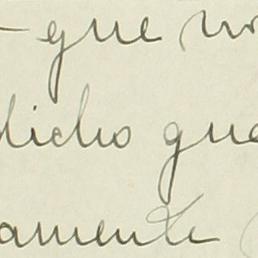 que no
dicho que
amente